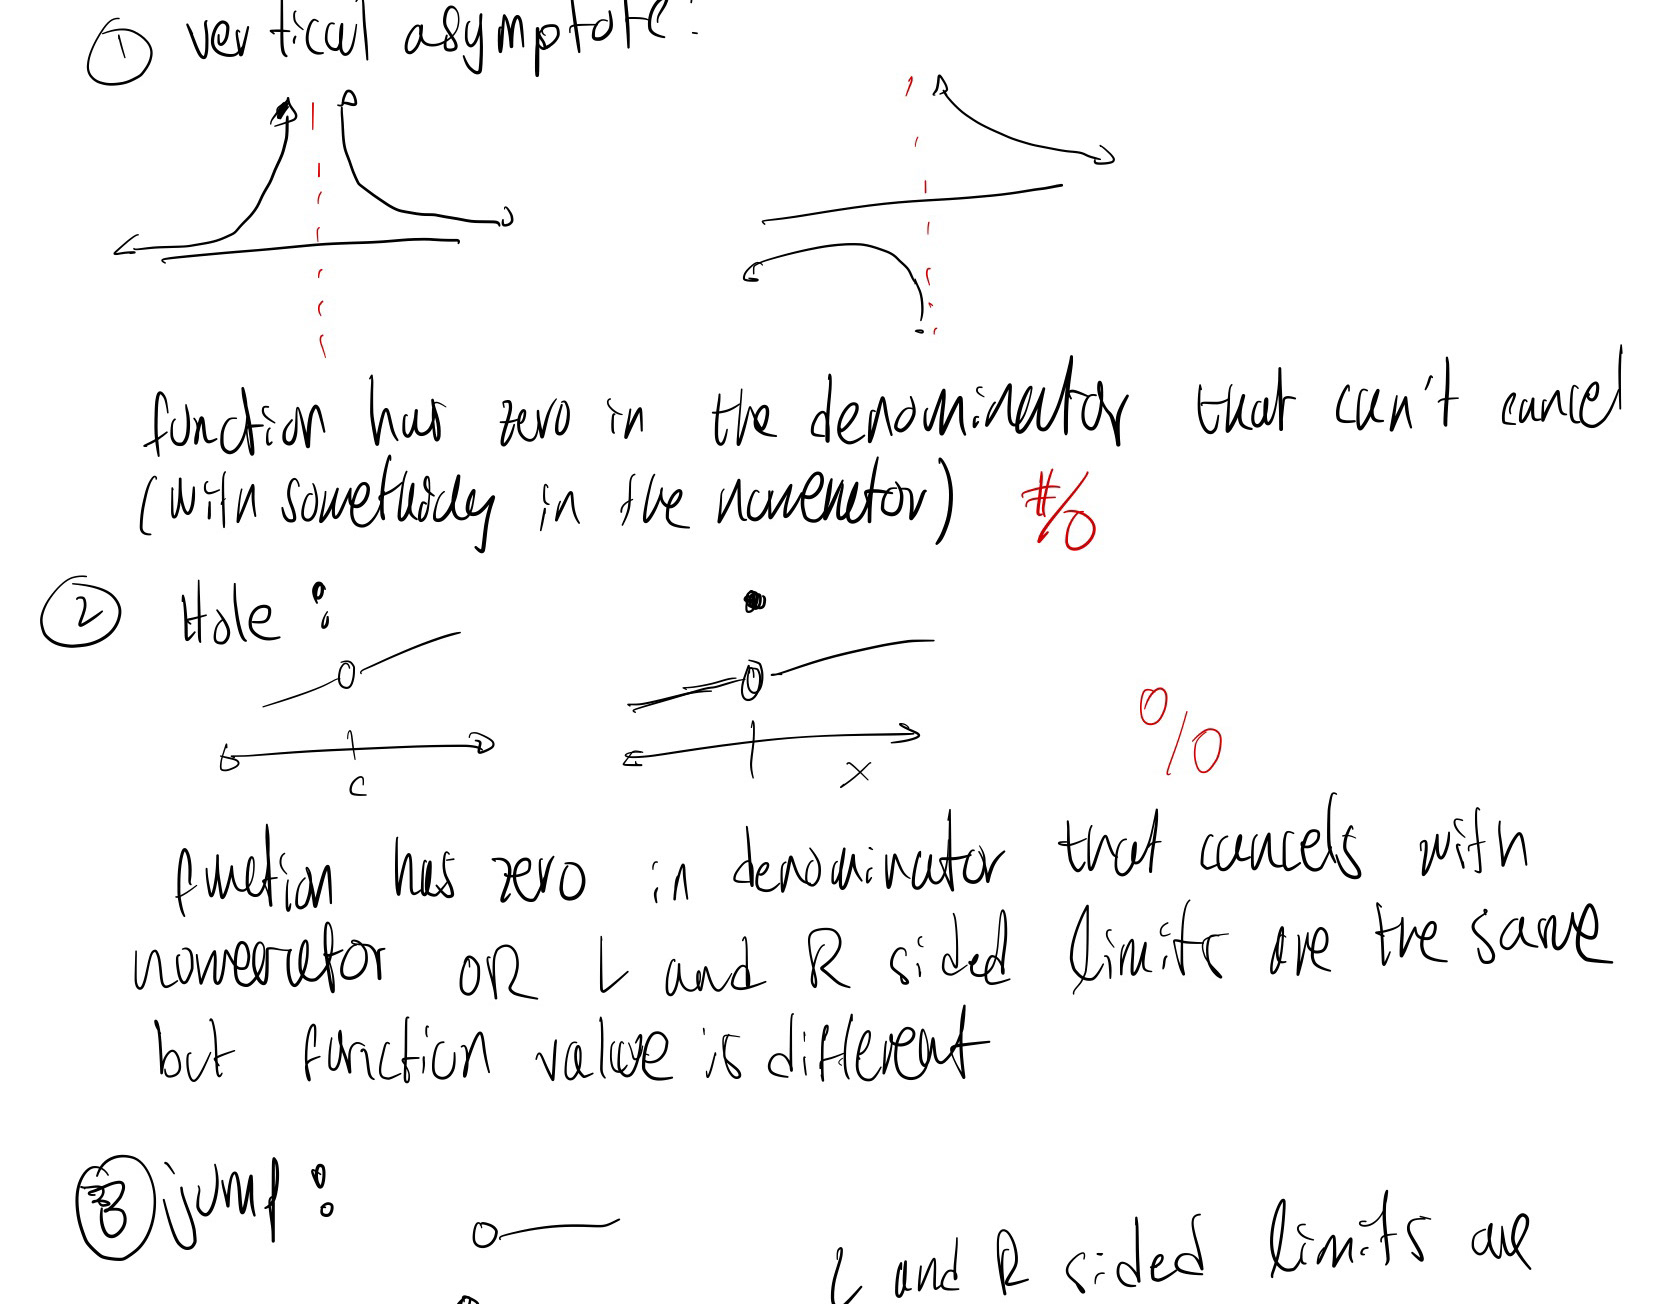 ① vertical asymptote:
function has zero in the denominator that can't cancel
(with something in the numerator) #/0
② Hole:
c
x
0/0
function has zero in denominator that cancels with
numerator OR L and R sided limits are the same
but function value is different
③ jump:
L and R sided limits are